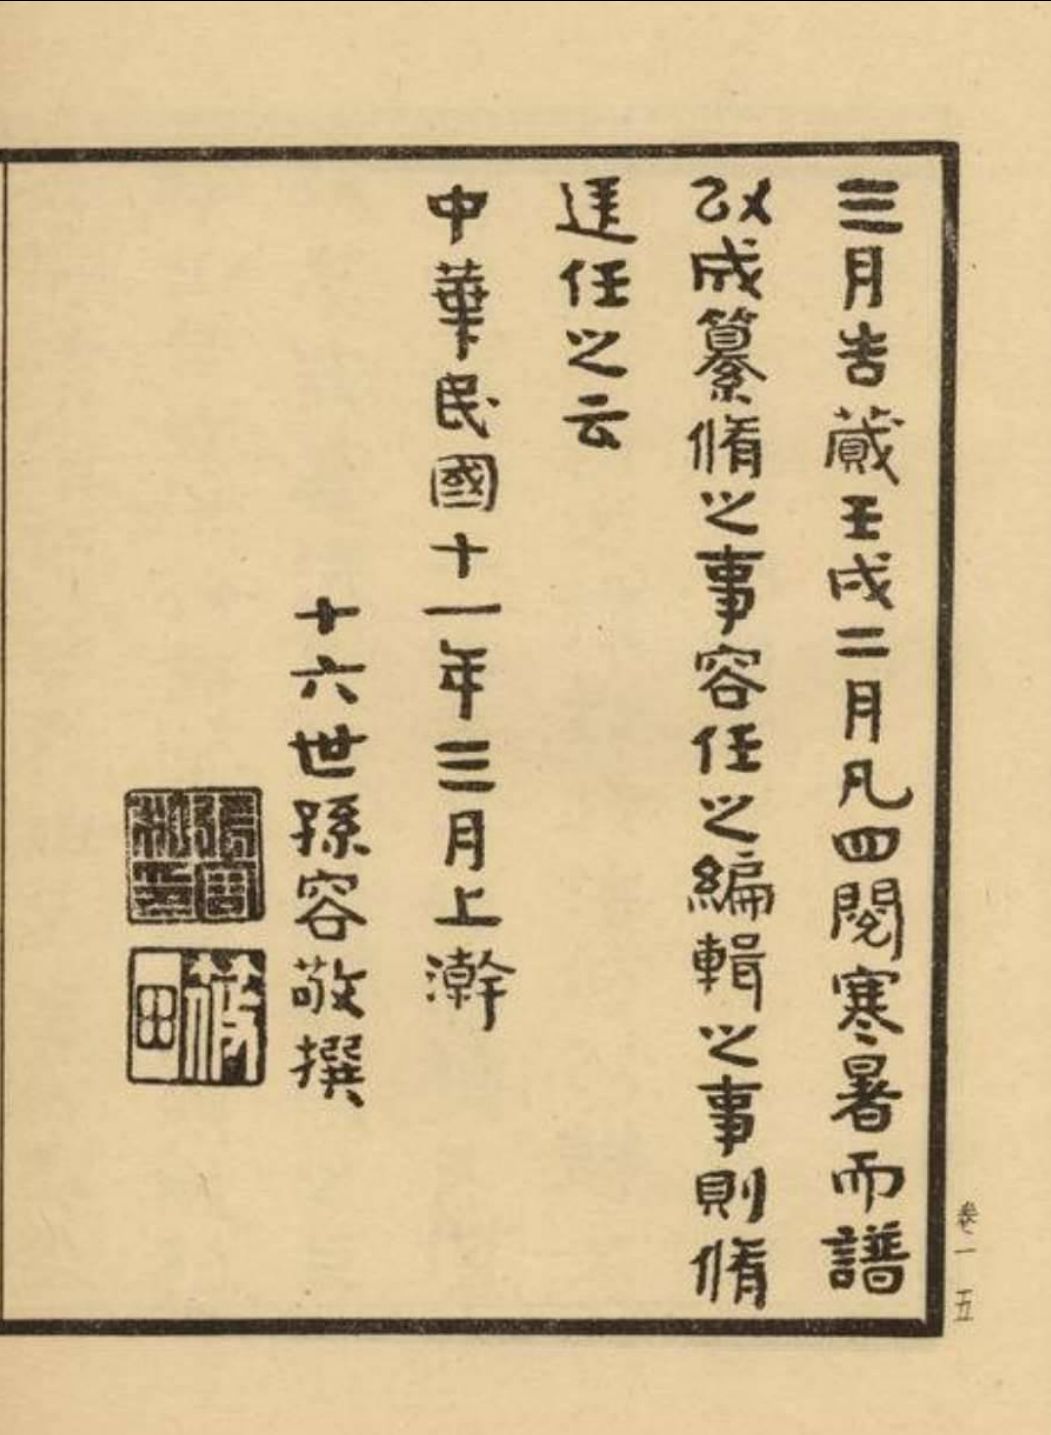 三月告蕆壬戌二月凡四閱寒暑而譜
以成纂脩之事容任之編輯之事則脩
任之云
中華民國十一年三月上澣
十六世孫容敬撰
卷一 五